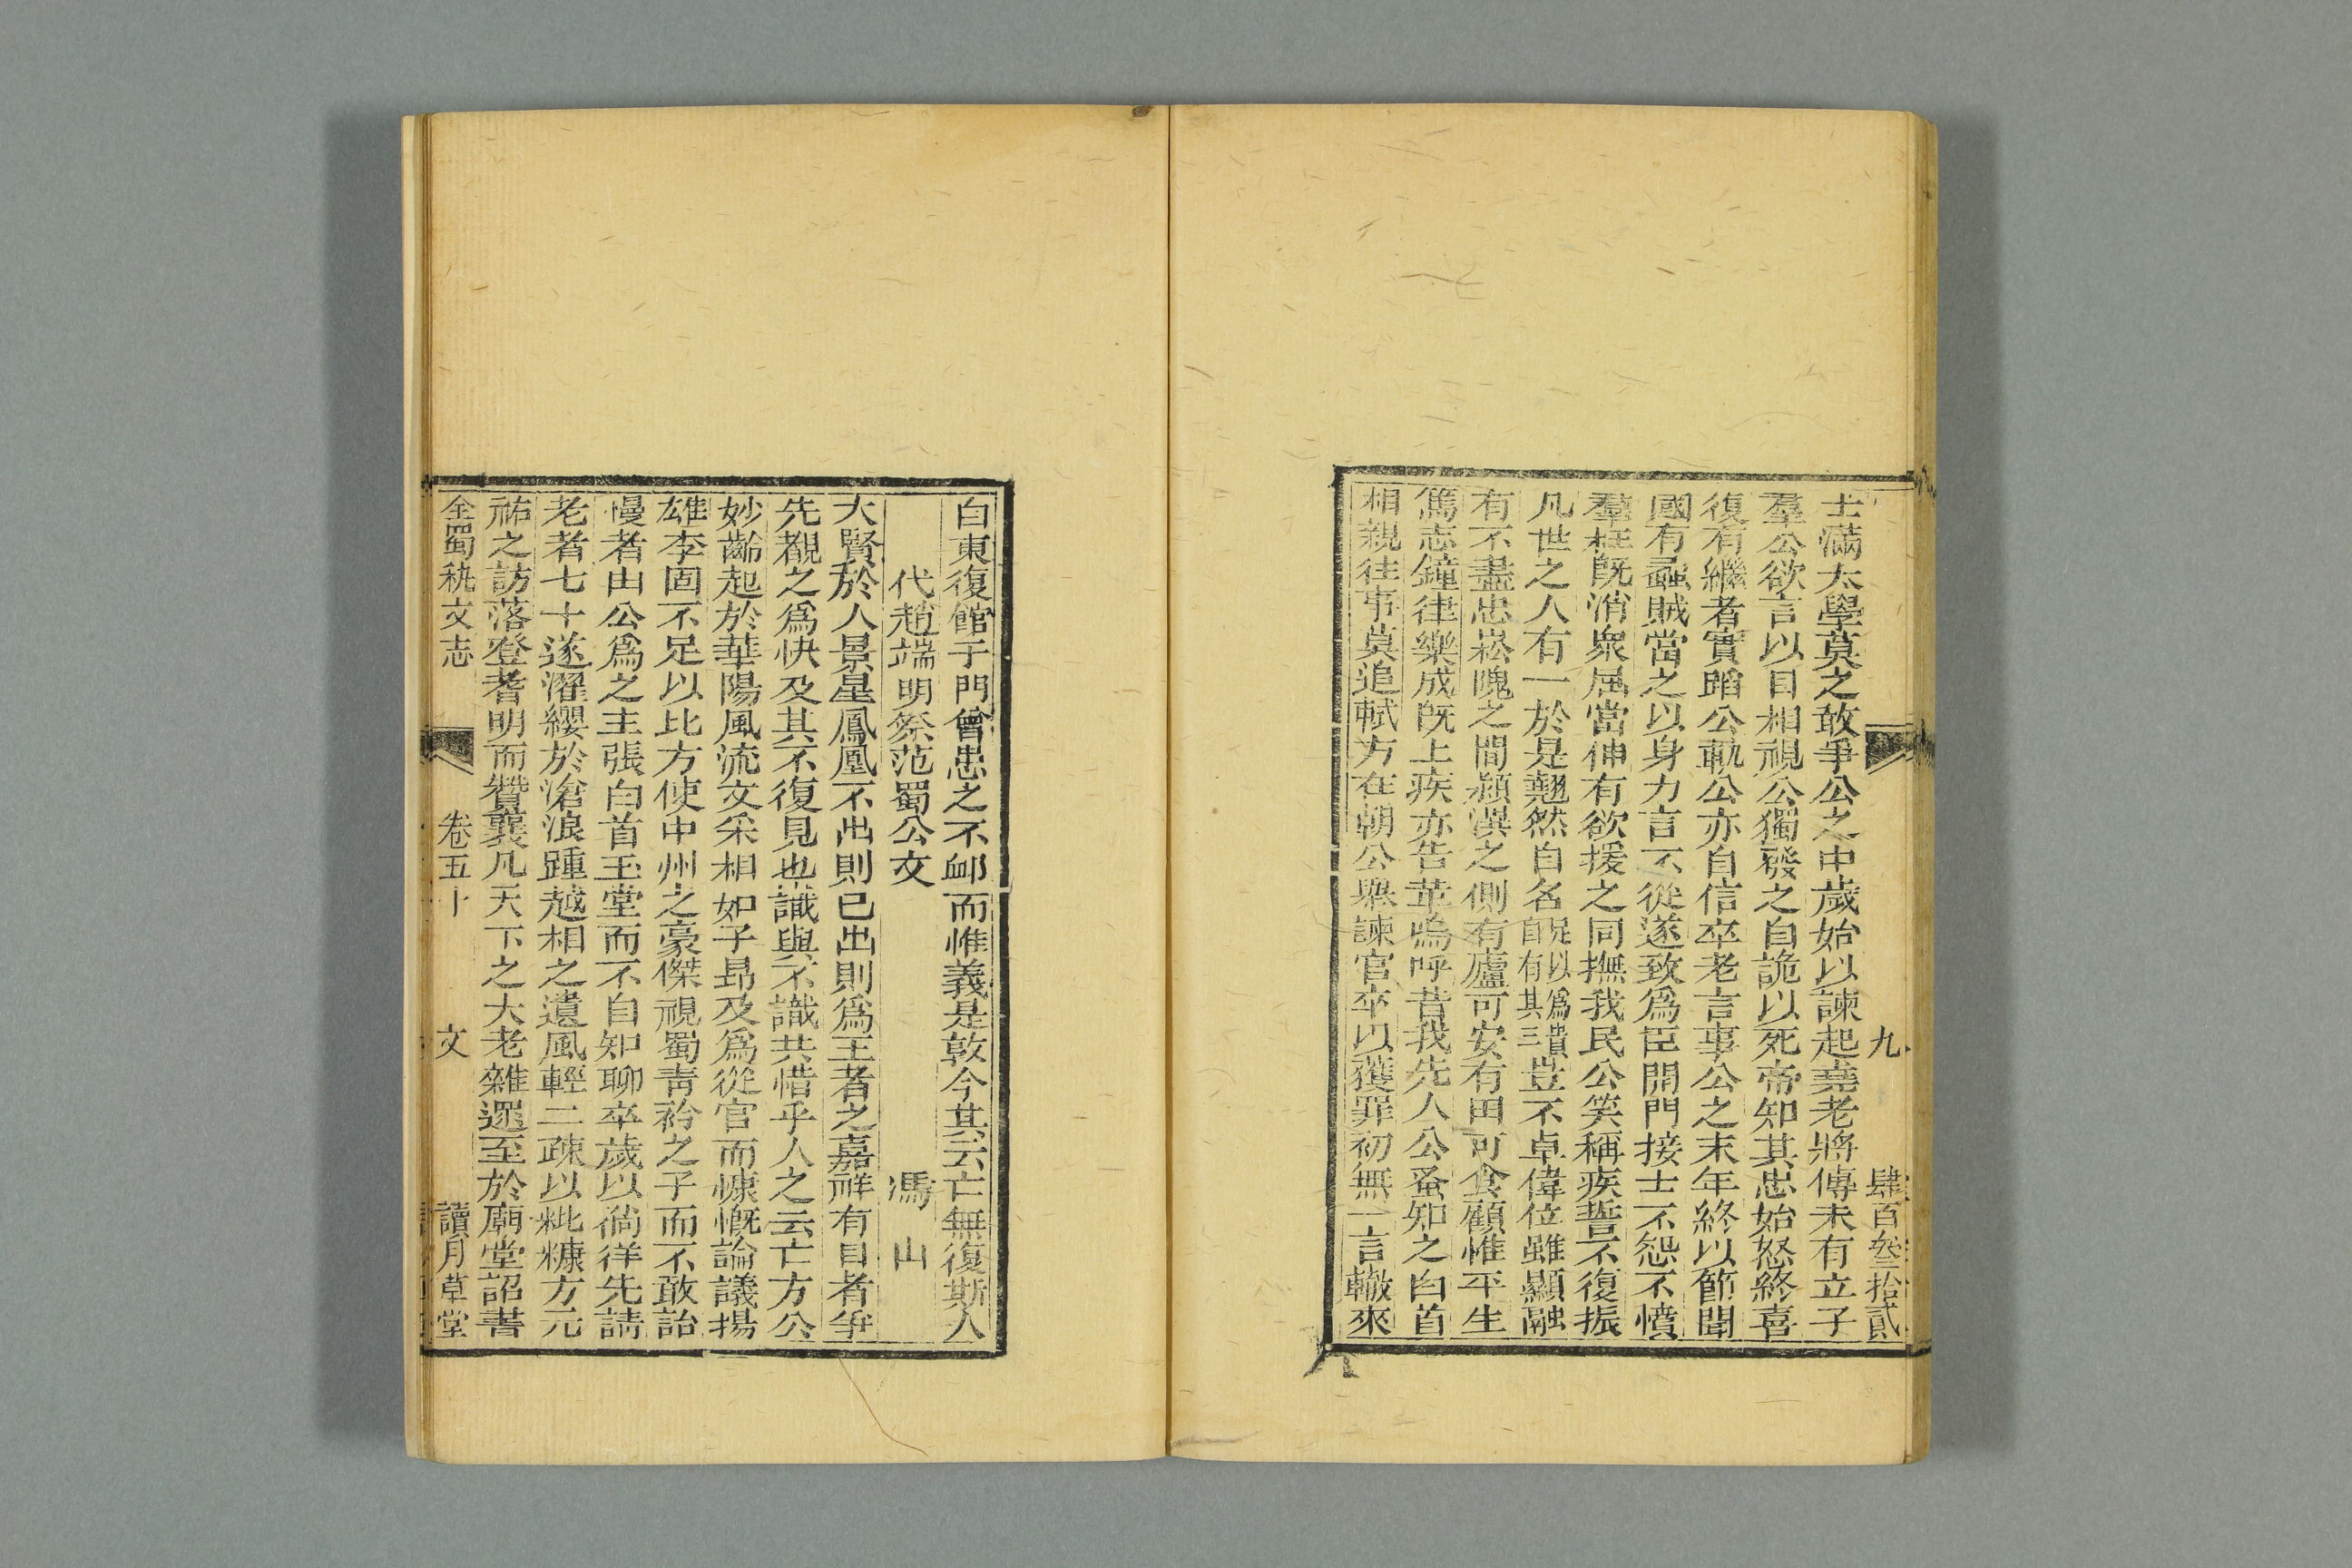 九 肆百叄拾貳
士滿太學莫之敢爭公之中歲始以諫起堯老將傳未有立子
羣公欲言以目相視公獨發之自詭以死帝知其忠始怒終喜
復有繼者實蹈公軌公亦自信卒老言事公之末年終以節聞
國有蟊賊當之以身力言不從遂致爲臣開門接士不怨不憤
羣枉旣消衆屈當伸有欲援之同撫我民公笑稱疾誓不復振
凡世之人有一於是翹然自名足以爲貴自有其三豈不卓偉位雖顯融
有不盡忠崧隗之間潁漢之側有廬可安有田可食顧惟平生
篤志鐘律樂成旣上疾亦告革嗚呼昔我先人公蚤知之白首
相親往事莫追軾方在朝公舉諫官卒以獲罪初無一言轍來
自東復館于門曾患之不卹而惟義是敦今其云亡無復斯人
代趙端明祭范蜀公文 馮山
大賢於人景星鳳凰不出則已出則爲王者之嘉祥有目者爭
先覩之爲快及其不復見也識與不識共惜乎人之云亡方公
妙齡起於華陽風流文采相如子昻及爲從官而慷慨論議揚
雄李固不足以比方使中州之豪傑視蜀靑衿之子而不敢詒
慢者由公爲之主張白首玉堂而不自知聊卒歲以徜徉先請
老者七十遂濯纓於滄浪踵越相之遺風輕二疎以粃糠方元
祐之訪落登耆明而贊襄凡天下之大老雜遝至於廟堂詔書
全蜀秇文志 卷五十 文 讀月草堂